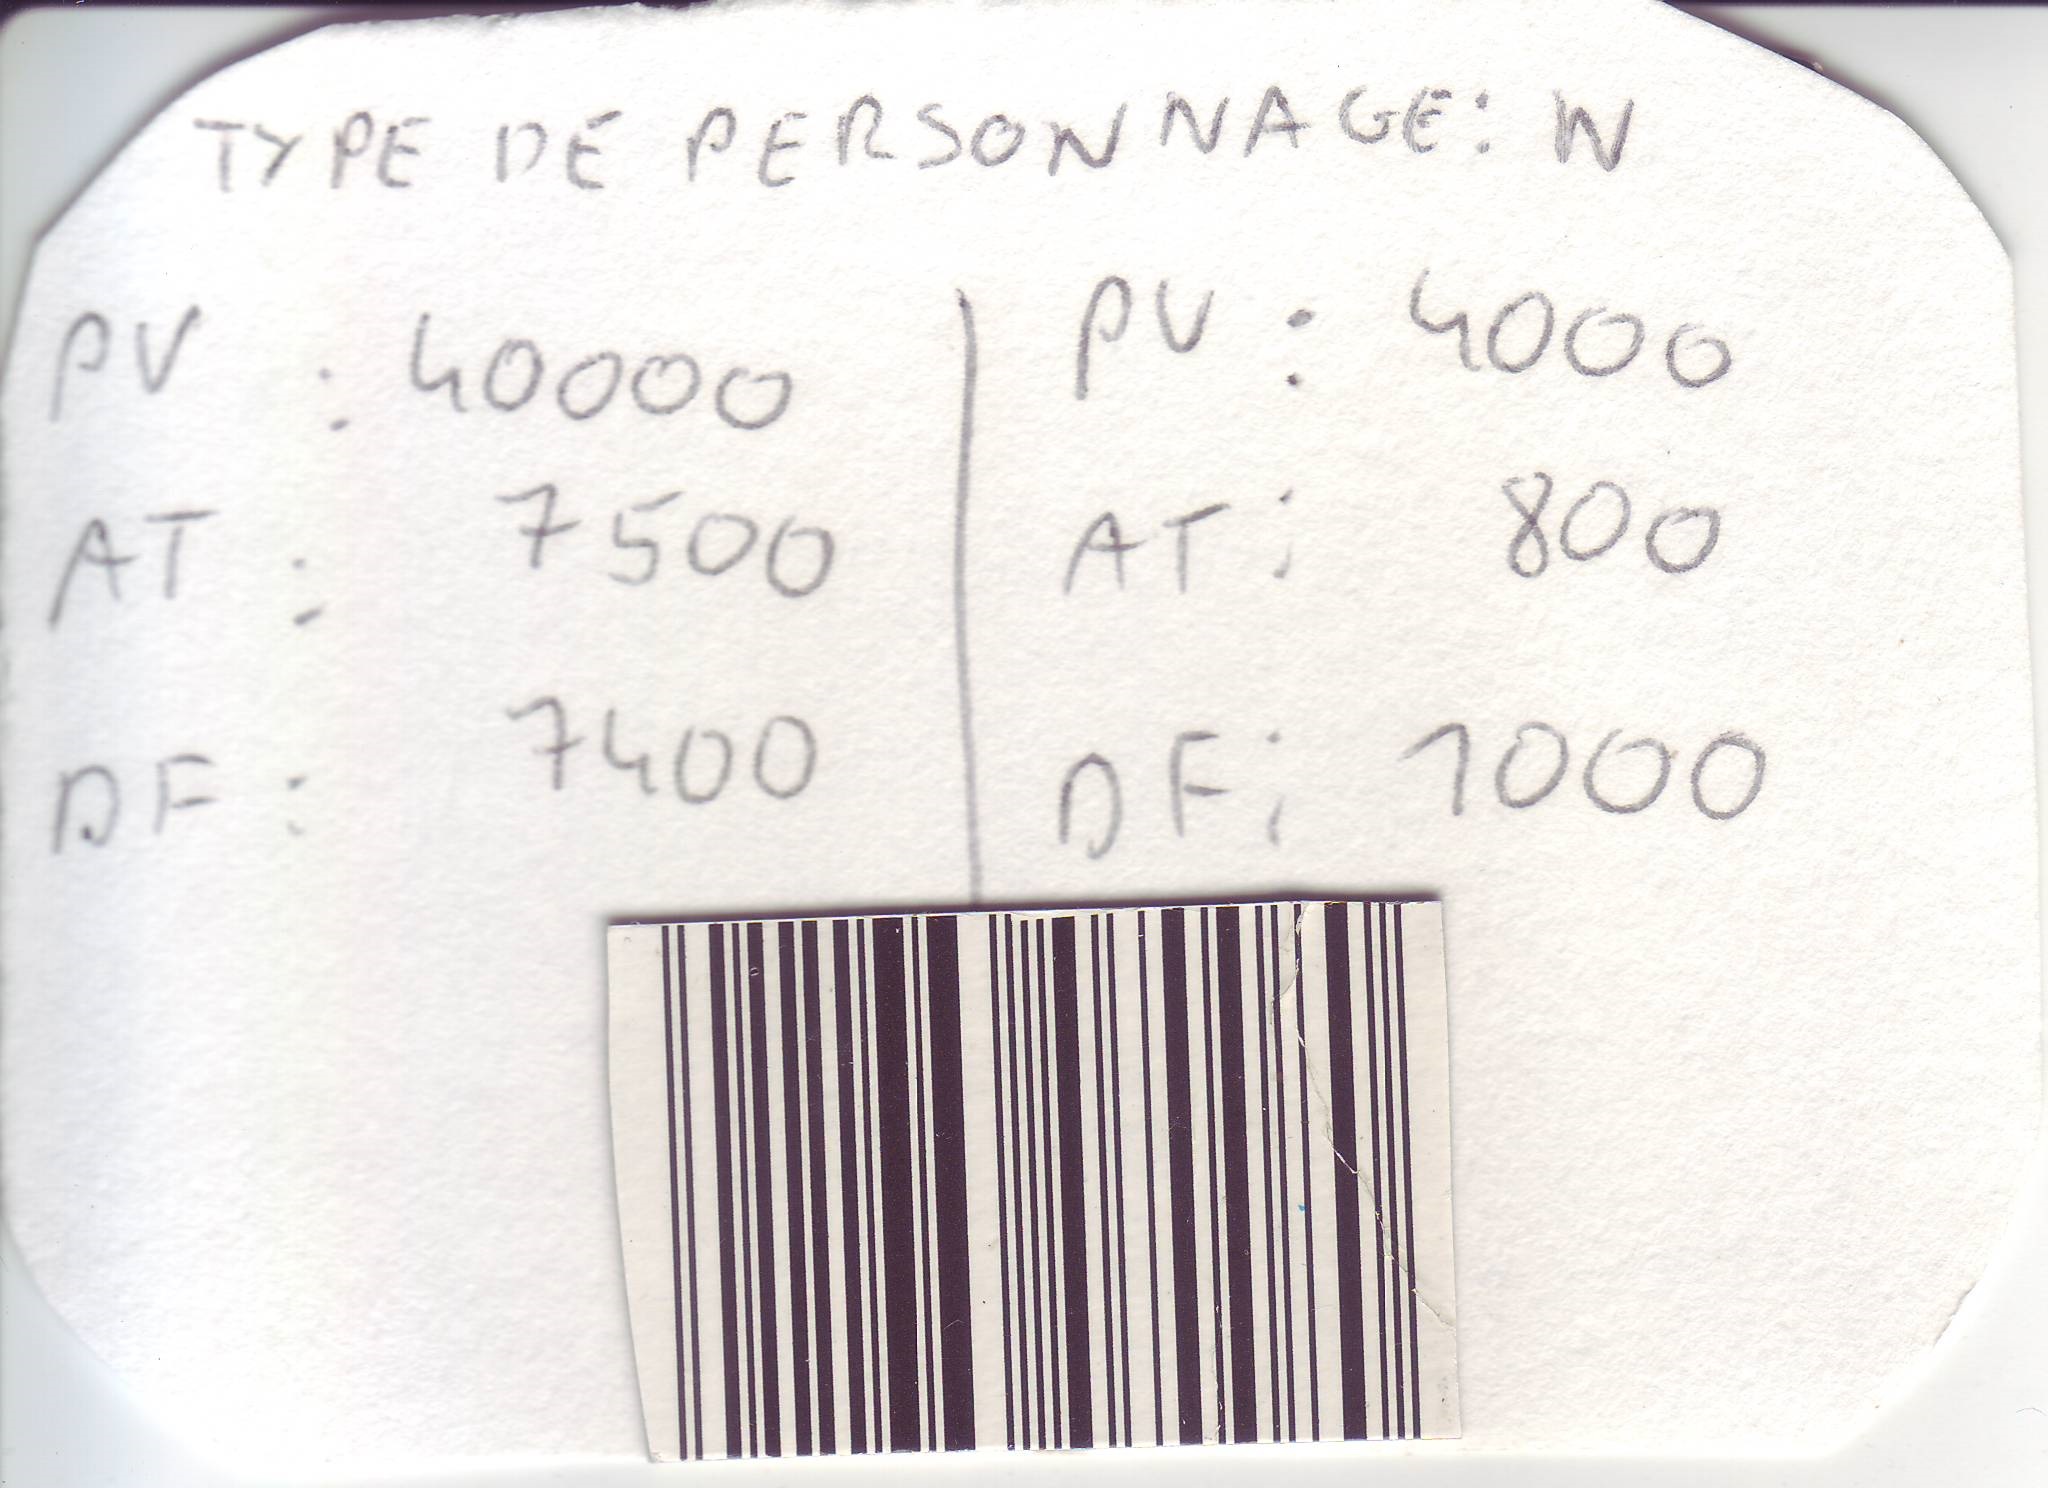 TYPE DE PERSONNAGE: W
PV : 40000
AT : 7500
DF : 7400
PV : 4000
AT : 800
DF : 1000